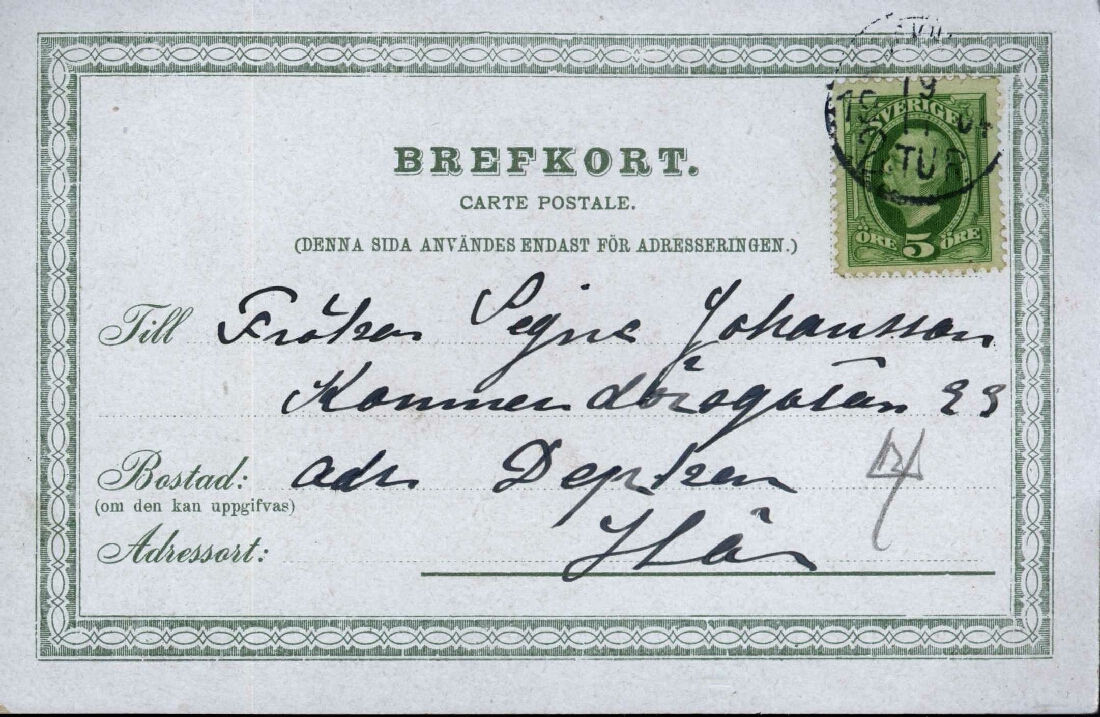 19
11 04
TUR
SVERIGE
ÖRE 5 ÖRE
BREFKORT.
CARTE POSTALE.
(DENNA SIDA ANVÄNDES ENDAST FÖR ADRESSERINGEN.)
Till Fröken Signe Johansson
Kommendörsgatan 23
Bostad: adr
(om den kan uppgifvas)
Adressort: Här